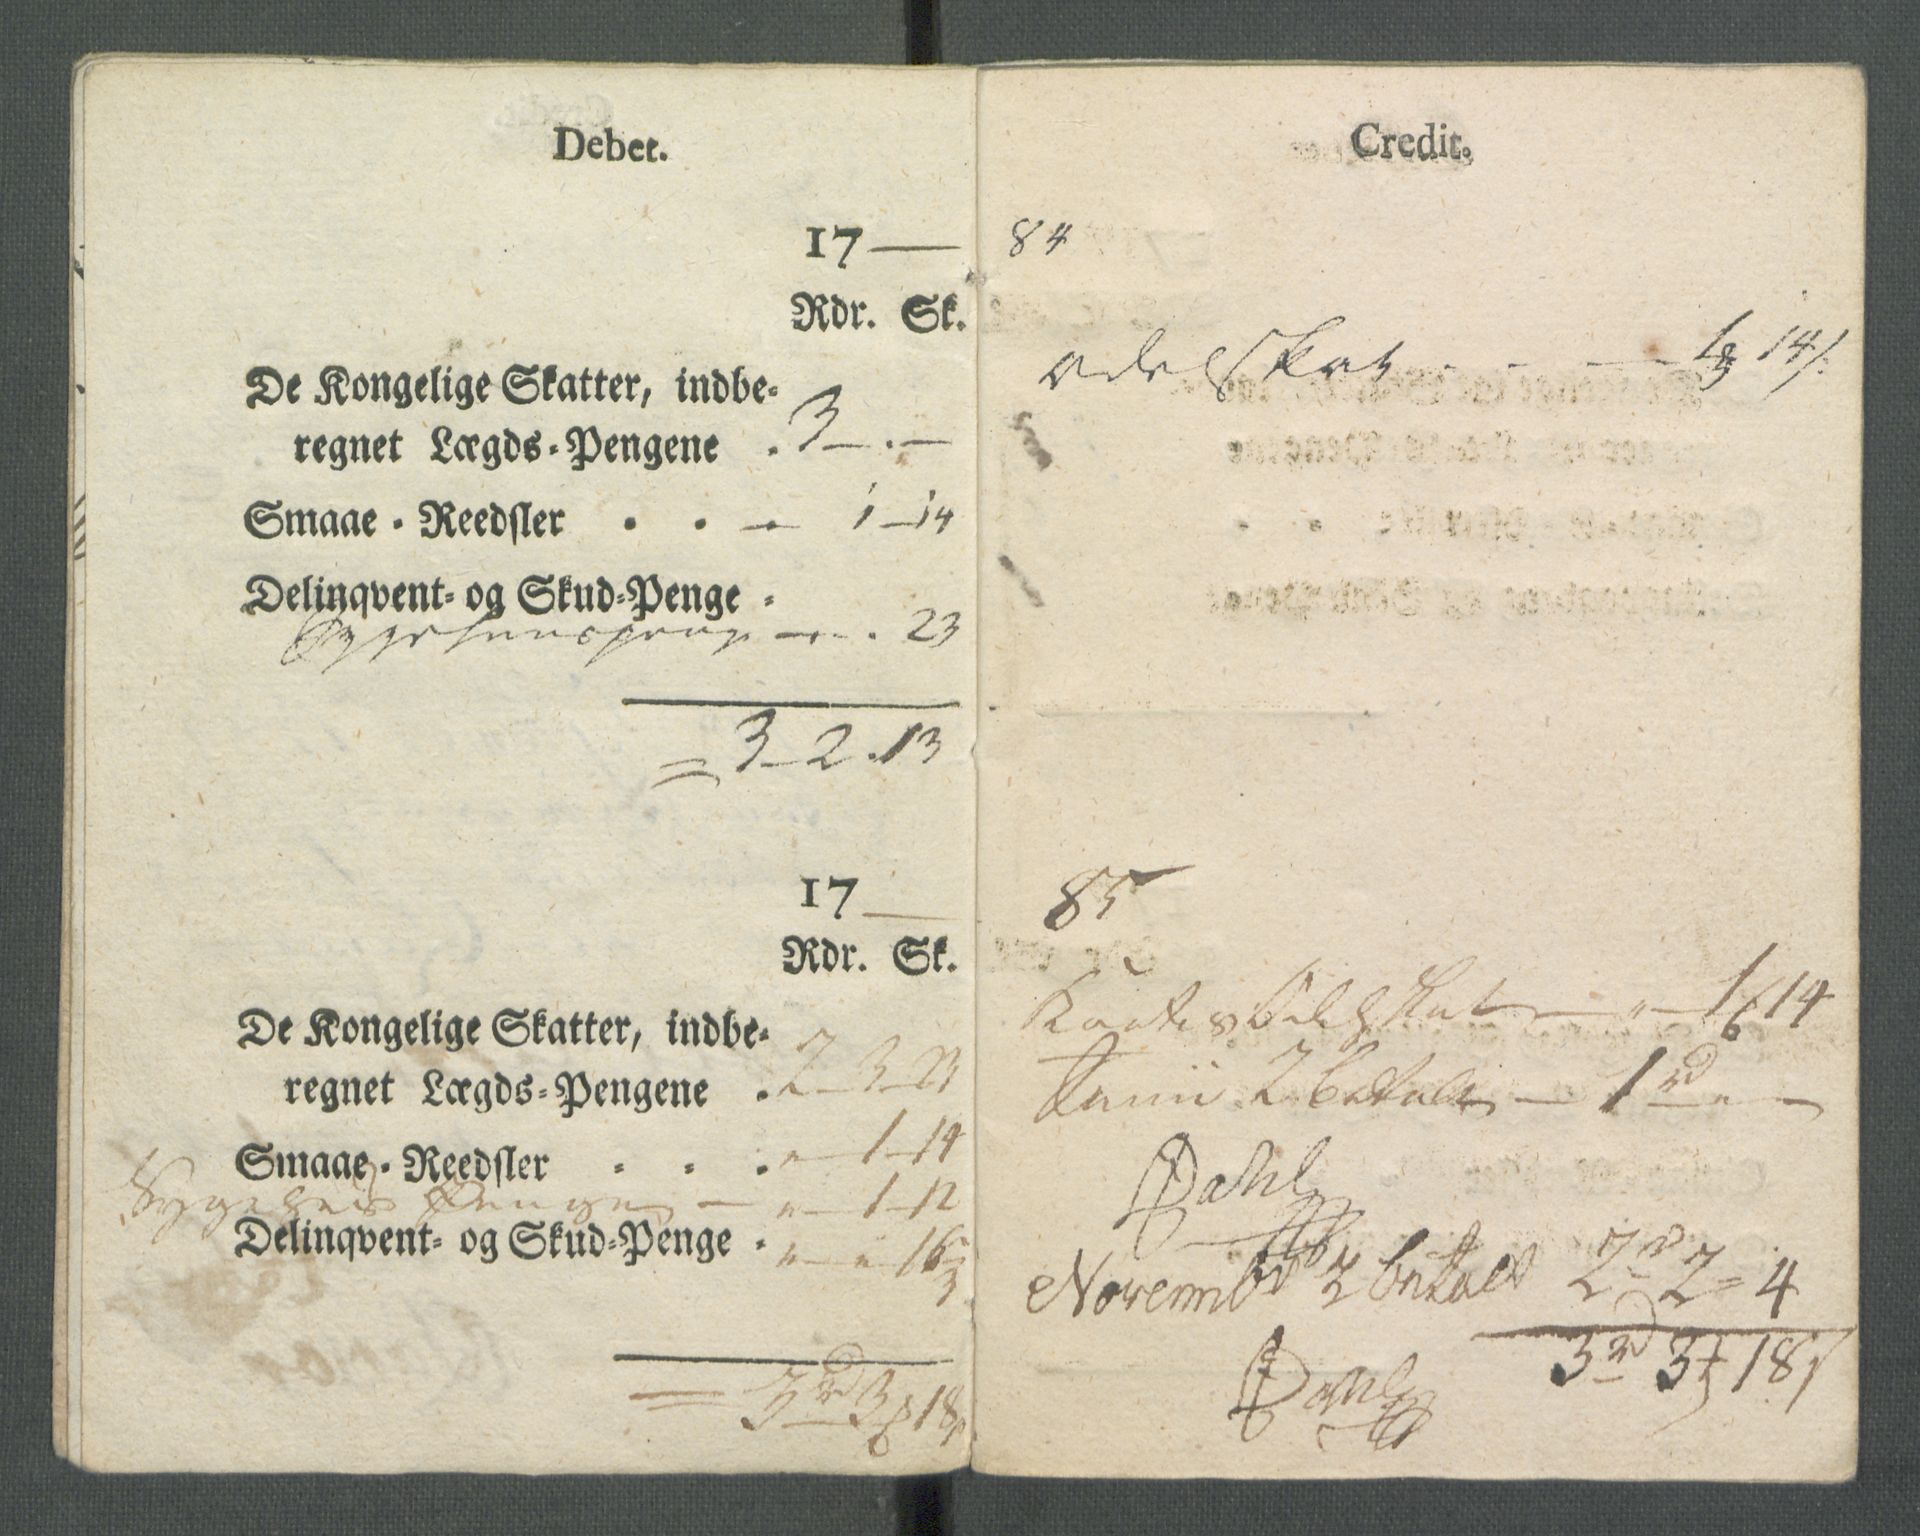 Debet.
17
Rdr. Sk.
De Kongelige Skatter, indbe-
regnet Lægds-Pengene . 3 — . —
Smaae-Reedsler . . — 1 — 14
Delinqvent- og Skud-Penge .
— . 23
= 3 — 2 . 13
17
Rdr. Sk.
De Kongelige Skatter, indbe-
regnet Lægds-Pengene . 2 — 3 — 23
Smaae-Reedsler . . . 1 — 14
Sygehuus Penge — 1 — 12
Delinqvent- og Skud-Penge . 16
= 3 rd 3 18
Credit.
84
Odelskat . . — 1 14
85
Odelskat — 1 14
Junii 2 betalt — 1 rd —
Dahl
Novembr 2 betalt 2 rd 2 = 4
3 rd 3 18
Dahl